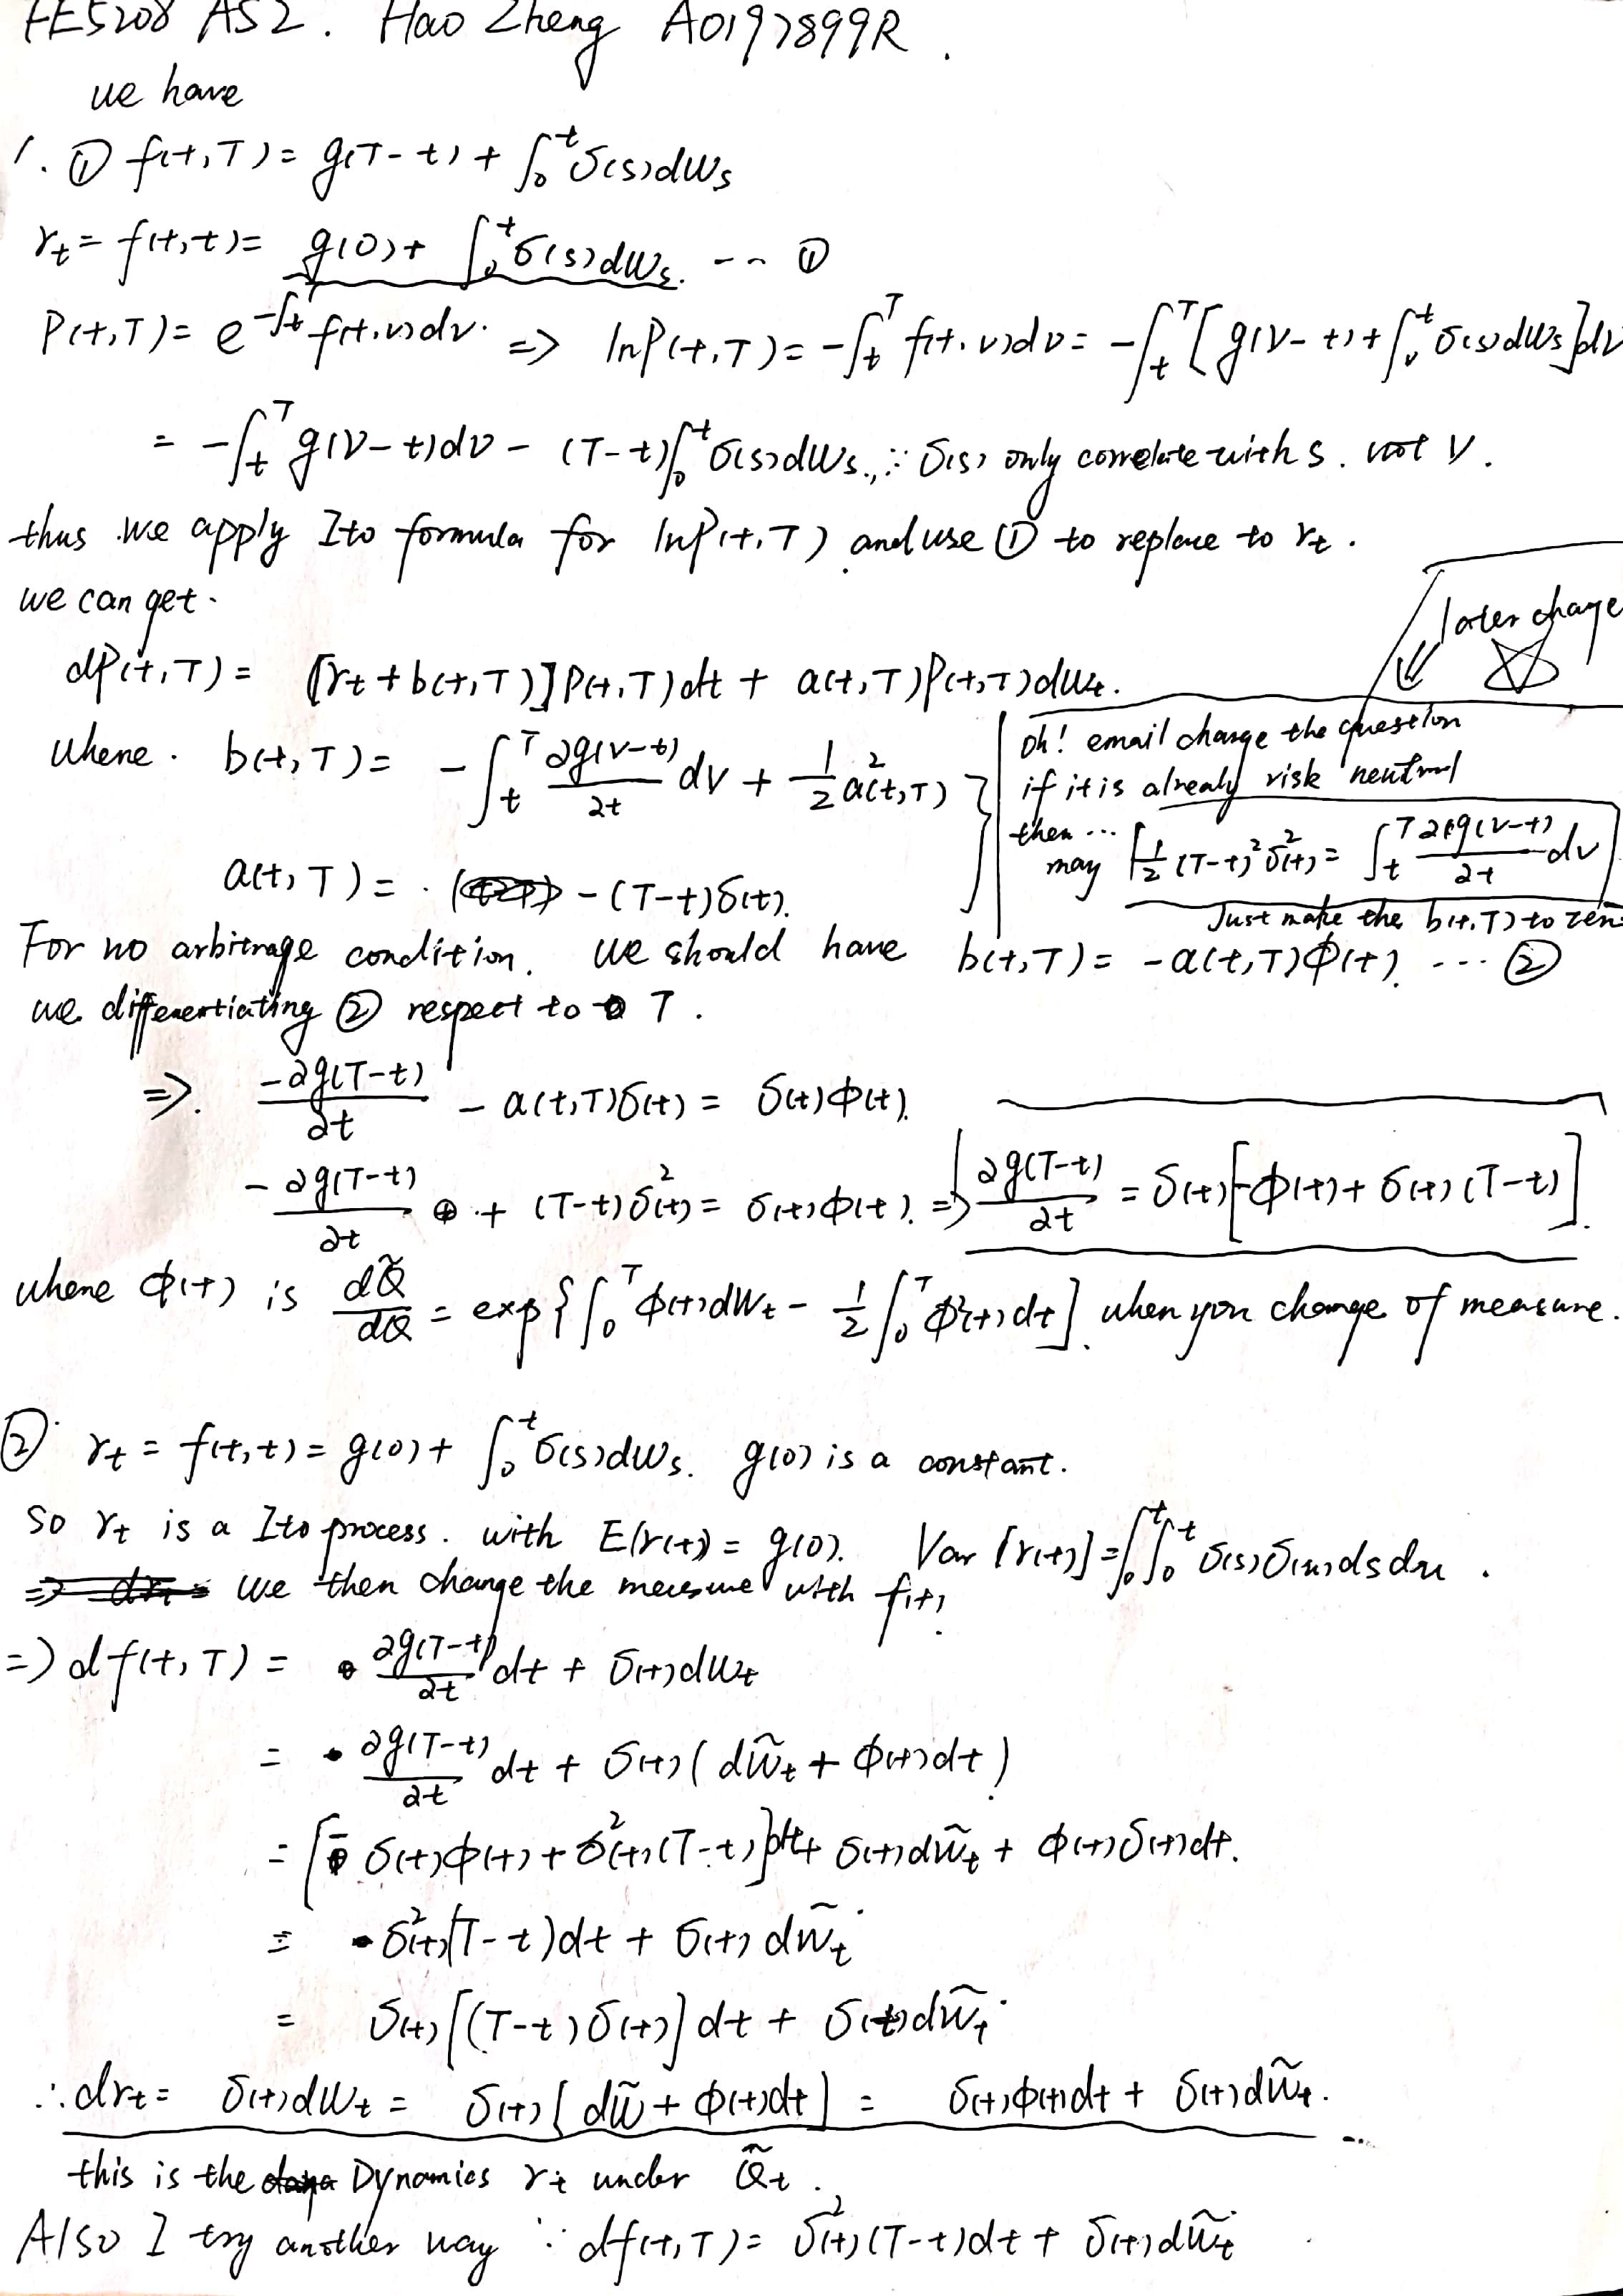 FE5208 AS2. Hao Zheng A0197899R.
we have
1. ① f(t,T) = g(T-t) + ∫₀ᵗ δ(s)dWs
rt = f(t,t) = g(0) + ∫₀ᵗ δ(s)dWs. --- ①
P(t,T) = e^{-∫ₜᵀ f(t,v)dv}. => lnP(t,T) = -∫ₜᵀ f(t,v)dv = -∫ₜᵀ [g(v-t) + ∫ᵥᵗ δ(s)dWs]dv
= -∫ₜᵀ g(v-t)dv - (T-t)∫₀ᵗ δ(s)dWs., ∵ δ(s) only correlate with s. not v.
thus we apply Ito formula for lnP(t,T) and use ① to replace to rt.
we can get.
later change
dP(t,T) = [rt + b(t,T)]P(t,T)dt + a(t,T)P(t,T)dWt.
where. b(t,T) = -∫ₜᵀ ∂g(v-t)/∂t dv + 1/2 a²(t,T)
oh! email change the question
if it is already risk neutral
then ...
may 1/2 (T-t)² δ²(t) = ∫ₜᵀ ∂g(v-t)/∂t dv
a(t,T) = -(T-t)δ(t).
Just make the b(t,T) to zero
For no arbitrage condition. We should have b(t,T) = -a(t,T)ϕ(t). ... ②
we differentiating ② respect to T.
=>. -∂g(T-t)/∂t - a(t,T)δ(t) = δ(t)ϕ(t).
-∂g(T-t)/∂t + (T-t)δ²(t) = δ(t)ϕ(t). => ∂g(T-t)/∂t = δ(t)[-ϕ(t) + δ(t)(T-t)].
where ϕ(t) is dQ̃/dQ = exp{∫₀ᵀ ϕ(t)dWt - 1/2 ∫₀ᵀ ϕ²(t)dt]. when you change of measure.
② rt = f(t,t) = g(0) + ∫₀ᵗ δ(s)dWs. g(0) is a constant.
So rt is a Ito process. with E(r(t)) = g(0). Var[r(t)] = ∫₀ᵗ∫₀ᵗ δ(s)δ(u)dsdu.
we then change the measure with f(t)
=> df(t,T) = ∂g(T-t)/∂t dt + δ(t)dWt
= ∂g(T-t)/∂t dt + δ(t)(dW̃t + ϕ(t)dt)
= [-δ(t)ϕ(t) + δ²(t)(T-t)]dt + δ(t)dW̃t + ϕ(t)δ(t)dt.
= δ²(t)(T-t)dt + δ(t)dW̃t
= δ(t)[(T-t)δ(t)]dt + δ(t)dW̃t.
∴ drt = δ(t)dWt = δ(t)[dW̃ + ϕ(t)dt] = δ(t)ϕ(t)dt + δ(t)dW̃t. ...
this is the Dynamics rt under Q̃t.
Also I try another way ∵ df(t,T) = δ²(t)(T-t)dt + δ(t)dW̃t